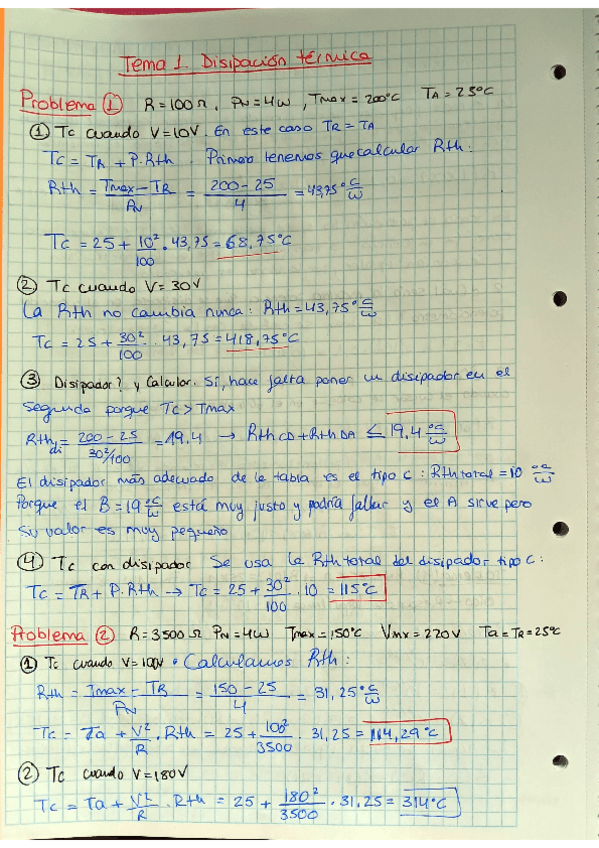 Tema 1. Disipación térmica
Problema ① R = 100 Ω, PN = 4W, Tmax = 200°C TA = 25°C
① Tc cuando V = 10V. En este caso TR = TA
Tc = TR + P.Rth. Primero tenemos que calcular Rth:
Rth = Tmax - TR / PN = 200 - 25 / 4 = 43,75 °C/W
Tc = 25 + 10²/100 . 43,75 = 68,75°C
② Tc cuando V = 30V
La Rth no cambia nunca: Rth = 43,75 °C/W
Tc = 25 + 30²/100 . 43,75 = 418,75°C
③ Disipador? y Calcular. Sí, hace falta poner un disipador en el
segundo porque Tc > Tmax
Rth di = 200 - 25 / 30²/100 = 19.4 → Rth CD + Rth DA ≤ 19,4 °C/W
El disipador más adecuado de la tabla es el tipo C: Rth total = 10 °C/W
Porque el B = 19 °C/W está muy justo y podría fallar y el A sirve pero
su valor es muy pequeño
④ Tc con disipador Se usa la Rth total del disipador tipo C:
Tc = TR + P.Rth → Tc = 25 + 30²/100 . 10 = 115°C
Problema ② R = 3500 Ω PN = 4W Tmax = 150°C Vmx = 220V Ta = TR = 25°C
① Tc cuando V = 100V • Calculamos Rth:
Rth = Tmax - TR / PN = 150 - 25 / 4 = 31,25 °C/W
Tc = Ta + V²/R . Rth = 25 + 100²/3500 . 31,25 = 114,29°C
② Tc cuando V = 180V
Tc = Ta + V²/R . Rth = 25 + 180²/3500 . 31.25 = 314°C